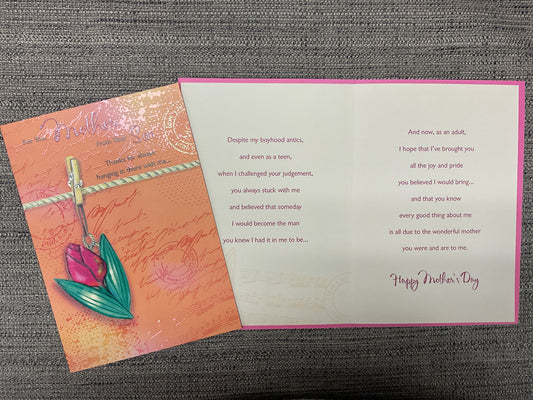 For You, Mother
from Your Son
Thanks for always
hanging in there with me...
Despite my boyhood antics,
and even as a teen,
when I challenged your judgement,
you always stuck with me
and believed that someday
I would become the man
you knew I had it in me to be...
And now, as an adult,
I hope that I've brought you
all the joy and pride
you believed I would bring...
and that you know
every good thing about me
is all due to the wonderful mother
you were and are to me.
Happy Mother's Day